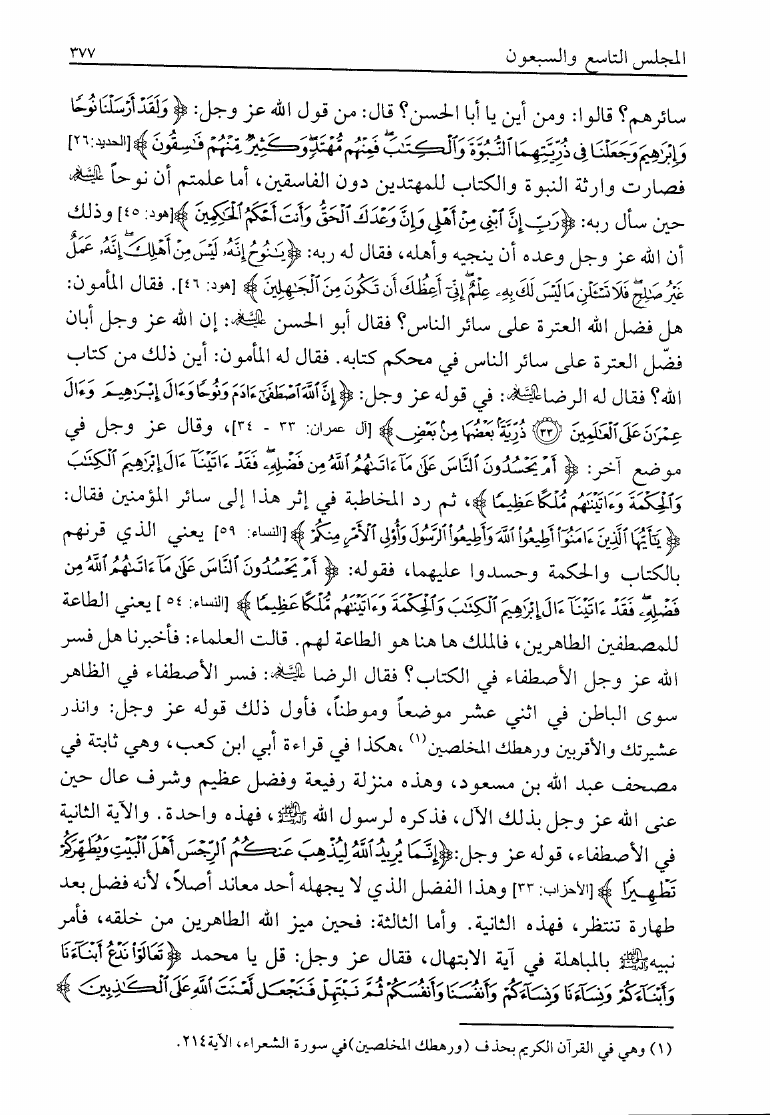 المجلس التاسع والسبعون ٣٧٧
سائرهم؟ قالوا: ومن أين يا أبا الحسن؟ قال: من قول الله عز وجل: ﴿ وَلَقَدْ أَرْسَلْنَا نُوحًا
وَإِبْرَاهِيمَ وَجَعَلْنَا فِي ذُرِّيَّتِهِمَا النُّبُوَّةَ وَالْكِتَابَ فَمِنْهُم مُّهْتَدٍ وَكَثِيرٌ مِّنْهُمْ فَاسِقُونَ ﴾ [الحديد: ٢٦]
فصارت وارثة النبوة والكتاب للمهتدين دون الفاسقين، أما علمتم أن نوحاً عليه السلام
حين سأل ربه: ﴿رَبِّ إِنَّ ابْنِي مِنْ أَهْلِي وَإِنَّ وَعْدَكَ الْحَقُّ وَأَنتَ أَحْكَمُ الْحَاكِمِينَ ﴾ [هود: ٤٥] وذلك
أن الله عز وجل وعده أن ينجيه وأهله، فقال له ربه: ﴿يَا نُوحُ إِنَّهُ لَيْسَ مِنْ أَهْلِكَ إِنَّهُ عَمَلٌ
غَيْرُ صَالِحٍ فَلَا تَسْأَلْنِ مَا لَيْسَ لَكَ بِهِ عِلْمٌ إِنِّي أَعِظُكَ أَن تَكُونَ مِنَ الْجَاهِلِينَ ﴾ [هود: ٤٦]. فقال المأمون:
هل فضل الله العترة على سائر الناس؟ فقال أبو الحسن عليه السلام: إن الله عز وجل أبان
فضّل العترة على سائر الناس في محكم كتابه. فقال له المأمون: أين ذلك من كتاب
الله؟ فقال له الرضا عليه السلام: في قوله عز وجل: ﴿ إِنَّ اللَّهَ اصْطَفَى آدَمَ وَنُوحًا وَآلَ إِبْرَاهِيمَ وَآلَ
عِمْرَانَ عَلَى الْعَالَمِينَ ٣٣ ذُرِّيَّةً بَعْضُهَا مِن بَعْضٍ ﴾ [آل عمران: ٣٣ - ٣٤]، وقال عز وجل في
موضع آخر: ﴿ أَمْ يَحْسُدُونَ النَّاسَ عَلَى مَا آتَاهُمُ اللَّهُ مِن فَضْلِهِ فَقَدْ آتَيْنَا آلَ إِبْرَاهِيمَ الْكِتَابَ
وَالْحِكْمَةَ وَآتَيْنَاهُم مُّلْكًا عَظِيمًا ﴾، ثم رد المخاطبة في إثر هذا إلى سائر المؤمنين فقال:
﴿ يَا أَيُّهَا الَّذِينَ آمَنُوا أَطِيعُوا اللَّهَ وَأَطِيعُوا الرَّسُولَ وَأُولِي الْأَمْرِ مِنكُمْ ﴾ [النساء: ٥٩] يعني الذي قرنهم
بالكتاب والحكمة وحسدوا عليهما، فقوله: ﴿ أَمْ يَحْسُدُونَ النَّاسَ عَلَى مَا آتَاهُمُ اللَّهُ مِن
فَضْلِهِ فَقَدْ آتَيْنَا آلَ إِبْرَاهِيمَ الْكِتَابَ وَالْحِكْمَةَ وَآتَيْنَاهُم مُّلْكًا عَظِيمًا ﴾ [النساء: ٥٤] يعني الطاعة
للمصطفين الطاهرين، فالملك ها هنا هو الطاعة لهم. قالت العلماء: فأخبرنا هل فسر
الله عز وجل الأصطفاء في الكتاب؟ فقال الرضا عليه السلام: فسر الأصطفاء في الظاهر
سوى الباطن في اثني عشر موضعاً وموطناً، فأول ذلك قوله عز وجل: وانذر
عشيرتك والأقربين ورهطك المخلصين(١) ،هكذا في قراءة أبي ابن كعب، وهي ثابتة في
مصحف عبد الله بن مسعود، وهذه منزلة رفيعة وفضل عظيم وشرف عال حين
عنى الله عز وجل بذلك الآل، فذكره لرسول الله ﷺ، فهذه واحدة. والآية الثانية
في الأصطفاء، قوله عز وجل:﴿إِنَّمَا يُرِيدُ اللَّهُ لِيُذْهِبَ عَنكُمُ الرِّجْسَ أَهْلَ الْبَيْتِ وَيُطَهِّرَكُمْ
تَطْهِيرًا ﴾ [الأحزاب: ٣٣] وهذا الفضل الذي لا يجهله أحد معاند أصلاً، لأنه فضل بعد
طهارة تنتظر، فهذه الثانية. وأما الثالثة: فحين ميز الله الطاهرين من خلقه، فأمر
نبيه ﷺ بالمباهلة في آية الابتهال، فقال عز وجل: قل يا محمد ﴿ تَعَالَوْا نَدْعُ أَبْنَاءَنَا
وَأَبْنَاءَكُمْ وَنِسَاءَنَا وَنِسَاءَكُمْ وَأَنفُسَنَا وَأَنفُسَكُمْ ثُمَّ نَبْتَهِلْ فَنَجْعَل لَّعْنَتَ اللَّهِ عَلَى الْكَاذِبِينَ ﴾
(١) وهي في القرآن الكريم بحذف (ورهطك المخلصين)في سورة الشعراء، الآية٢١٤.